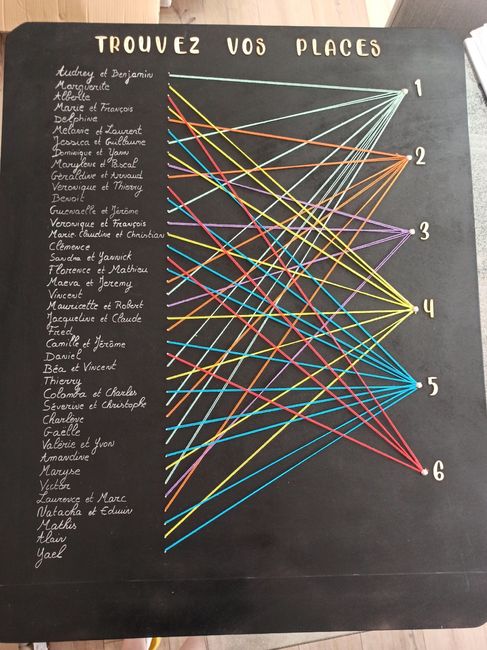 TROUVEZ VOS PLACES
Audrey et Benjamin
Marguerite
Alberte
Marie et François
Delphine
Mélanie et Laurent
Jessica et Guillaume
Dominique et Yann
Marylène et Pascal
Géraldine et Arnaud
Veronique et Thierry
Benoit
Gwenaelle et Jérôme
Veronique et François
Marie Claudine et Christian
Clémence
Sandra et Yannick
Florence et Mathieu
Maeva et Jeremy
Vincent
Mauricette et Robert
Jacqueline et Claude
Fred
Camille et Jérôme
Daniel
Béa et Vincent
Thierry
Colomba et Charles
Séverine et Christophe
Charlène
Gaelle
Valérie et Yvon
Amandine
Maryse
Victor
Laurence et Marc
Natacha et Edwin
Mathis
Alain
Yael
1
2
3
4
5
6